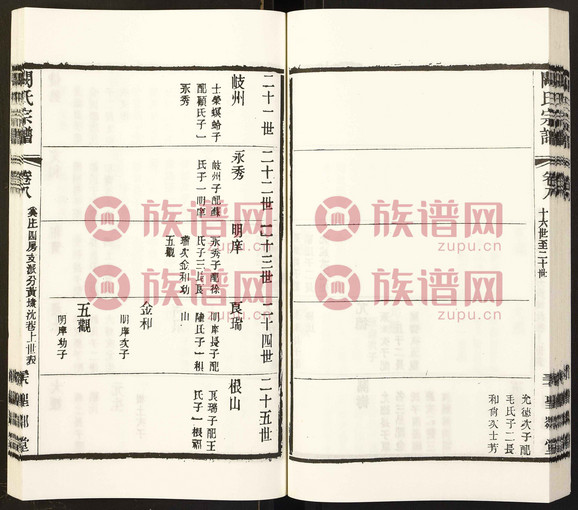 卷八
十六世至二十世
允德次子配
毛氏子二長
和尚次士芳
二十一世
二十二世
二十三世
二十四世
二十五世
岐州
士榮螟蛉子
配顧氏子一
永秀
永秀
岐州子配蘇
氏子一明庠
明庠
永秀子配徐
氏子三長良
瑞次金和幼
五觀
良瑞
明庠長子配
陳氏子一根
山
金和
明庠次子
五觀
明庠幼子
根山
良瑞子配王
氏子一根福
氏宗譜
卷八
族谱网
zupu.cn
族谱网
zupu.cn
族谱网
zupu.cn
族谱网
zupu.cn